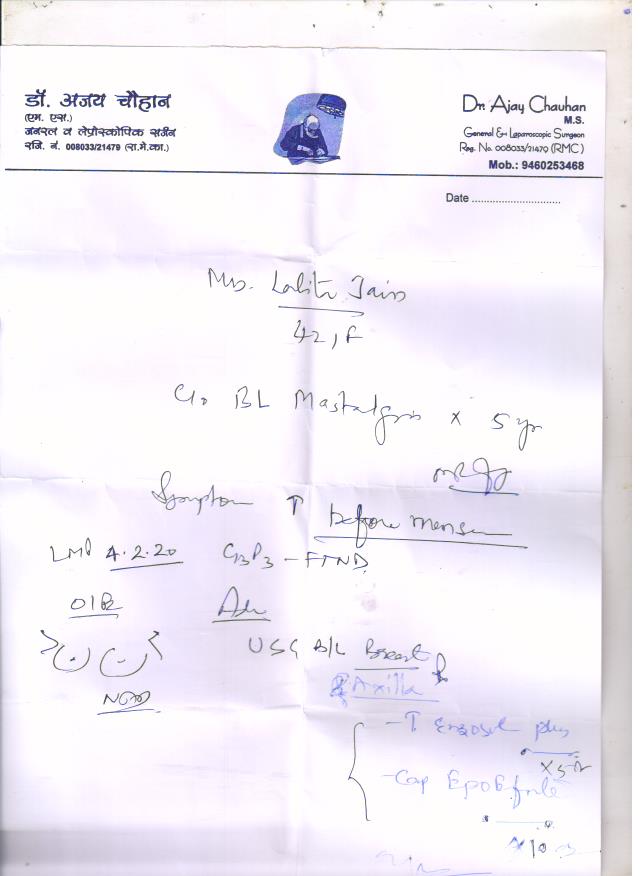 डॉ. अजय चौहान
(एम. एस.)
जनरल व लेप्रोस्कोपिक सर्जन
रजि. नं. 008033/21479 (रा.मे.का.)
Dr. Ajay Chauhan
M.S.
General & Laparoscopic Surgeon
Reg. No. 008033/21479 (RMC)
Mob.: 9460253468
Date ..............................
Mrs. Lalita Jain
42, F
C/o BL Mastalgia x 5 yr
Symptom ↑ before menses
LMP 4.2.20 G3P3 - FTND
O/E Adv
USG B/L Breast
& Axilla
NAD
- T
x 5
- Cap Epo E forte
x 10